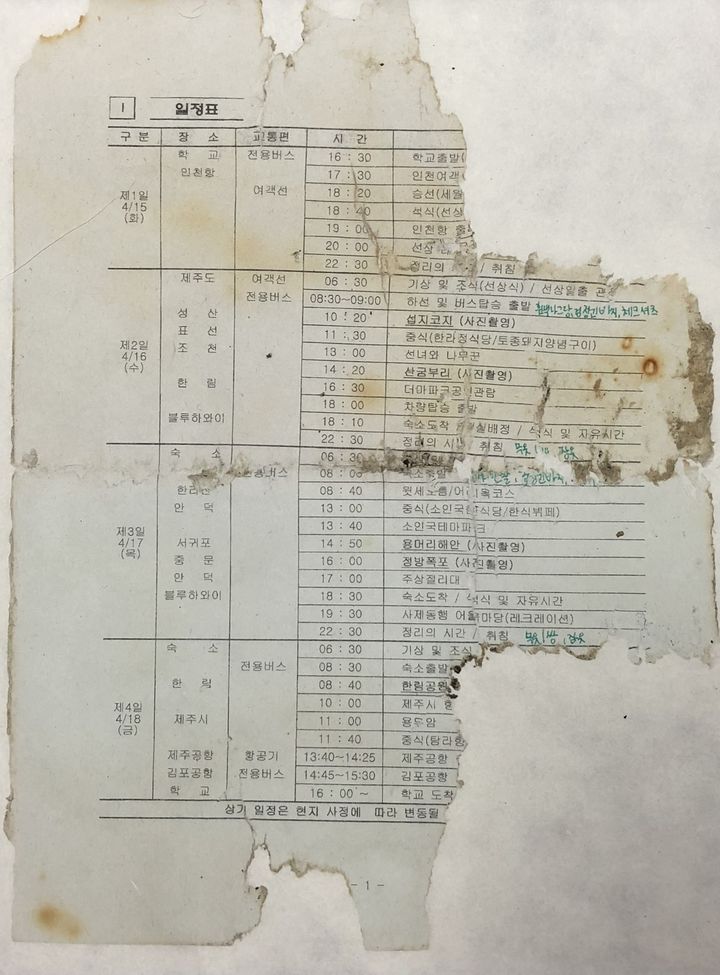 I 일정표
구 분 장 소 교통편 시 간
학 교 전용버스 16 : 30 학교출발(
인천항 17 : 30 인천여객
제1일 여객선 18 : 20 승선(세월
4/15 18 : 40 석식(선상
(화) 19 : 00 인천항 출
20 : 00 선상
22 : 30 정리의 / 취침
제주도 여객선 06 : 30 기상 및 조식(선상식) / 선상일출
전용버스 08:30~09:00 하선 및 버스탑승 출발
성 산 10 : 20 섭지코지 (사진촬영)
표 선 11 : 30 중식(한라정식당/토종돼지양념구이)
제2일 조 천 13 : 00 선녀와 나무꾼
4/16 14 : 20 산굼부리 (사진촬영)
(수) 한 림 16 : 30 더마파크공연관람
18 : 00 차량탑승 출발
블루하와이 18 : 10 숙소도착 실배정 / 석식 및 자유시간
22 : 30 정리의 시 취침
숙 소 06 : 30
전용버스 08 : 00 숙소출발
한라산 08 : 40 윗세오름/어 목코스
안 덕 13 : 00 중식(소인국 식당/한식뷔페)
제3일 13 : 40 소인국테마파크
4/17 서귀포 14 : 50 용머리해안 (사진촬영)
(목) 중 문 16 : 00 정방폭포 (사진촬영)
안 덕 17 : 00 주상절리대
블루하와이 18 : 30 숙소도착 / 석식 및 자유시간
19 : 30 사제동행 어울마당(레크레이션)
22 : 30 정리의 시간 / 취침
숙 소 06 : 30 기상 및 조식
전용버스 08 : 30 숙소출발
한 림 08 : 40 한림공원
제4일 10 : 00 제주시
4/18 제주시 11 : 00 용두암
(금) 11 : 40 중식(탐라
제주공항 항공기 13:40~14:25 제주공항
김포공항 전용버스 14:45~15:30 김포공항
학 교 16 : 00 ~ 학교 도착
상기 일정은 현지 사정에 따라 변동될
- 1 -